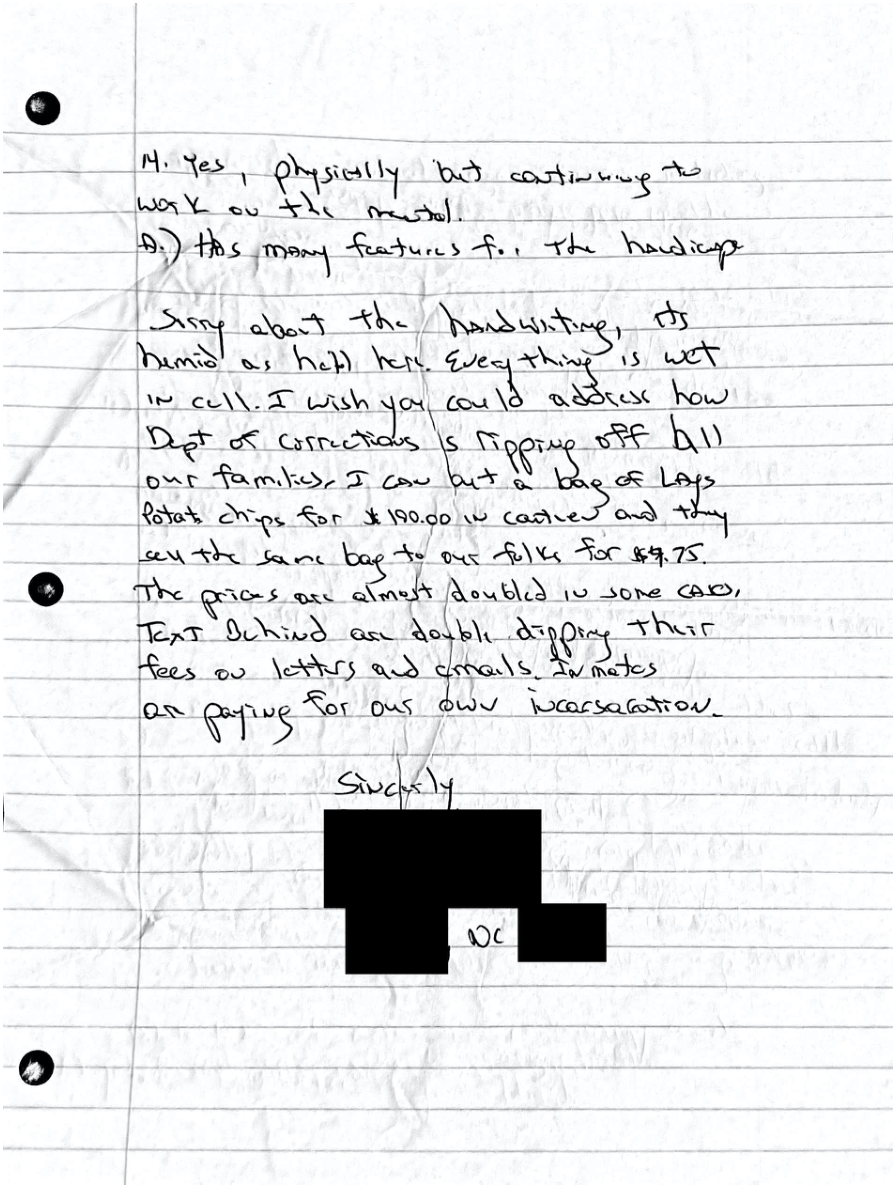 14. Yes, physically but continuing to
work on the mental.
A.) Has many features for the handicap
Sorry about the handwriting, its
humid as hell here. Everything is wet
in cell. I wish you could address how
Dept of corrections is ripping off all
our families. I can but a bag of Lays
Potato chips for $ 190.00 in canteen and they
sell the same bag to our folks for $4.75.
The prices are almost doubled in some cases.
Text Behind are double dipping their
fees on letters and emails. Inmates
are paying for our own incarsaration.
Sincerely
, NC